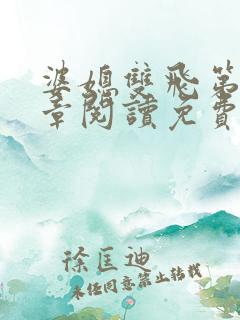 婆媳雙飛第
章閱讀免費
徐匡迪
未任同意禁止转载